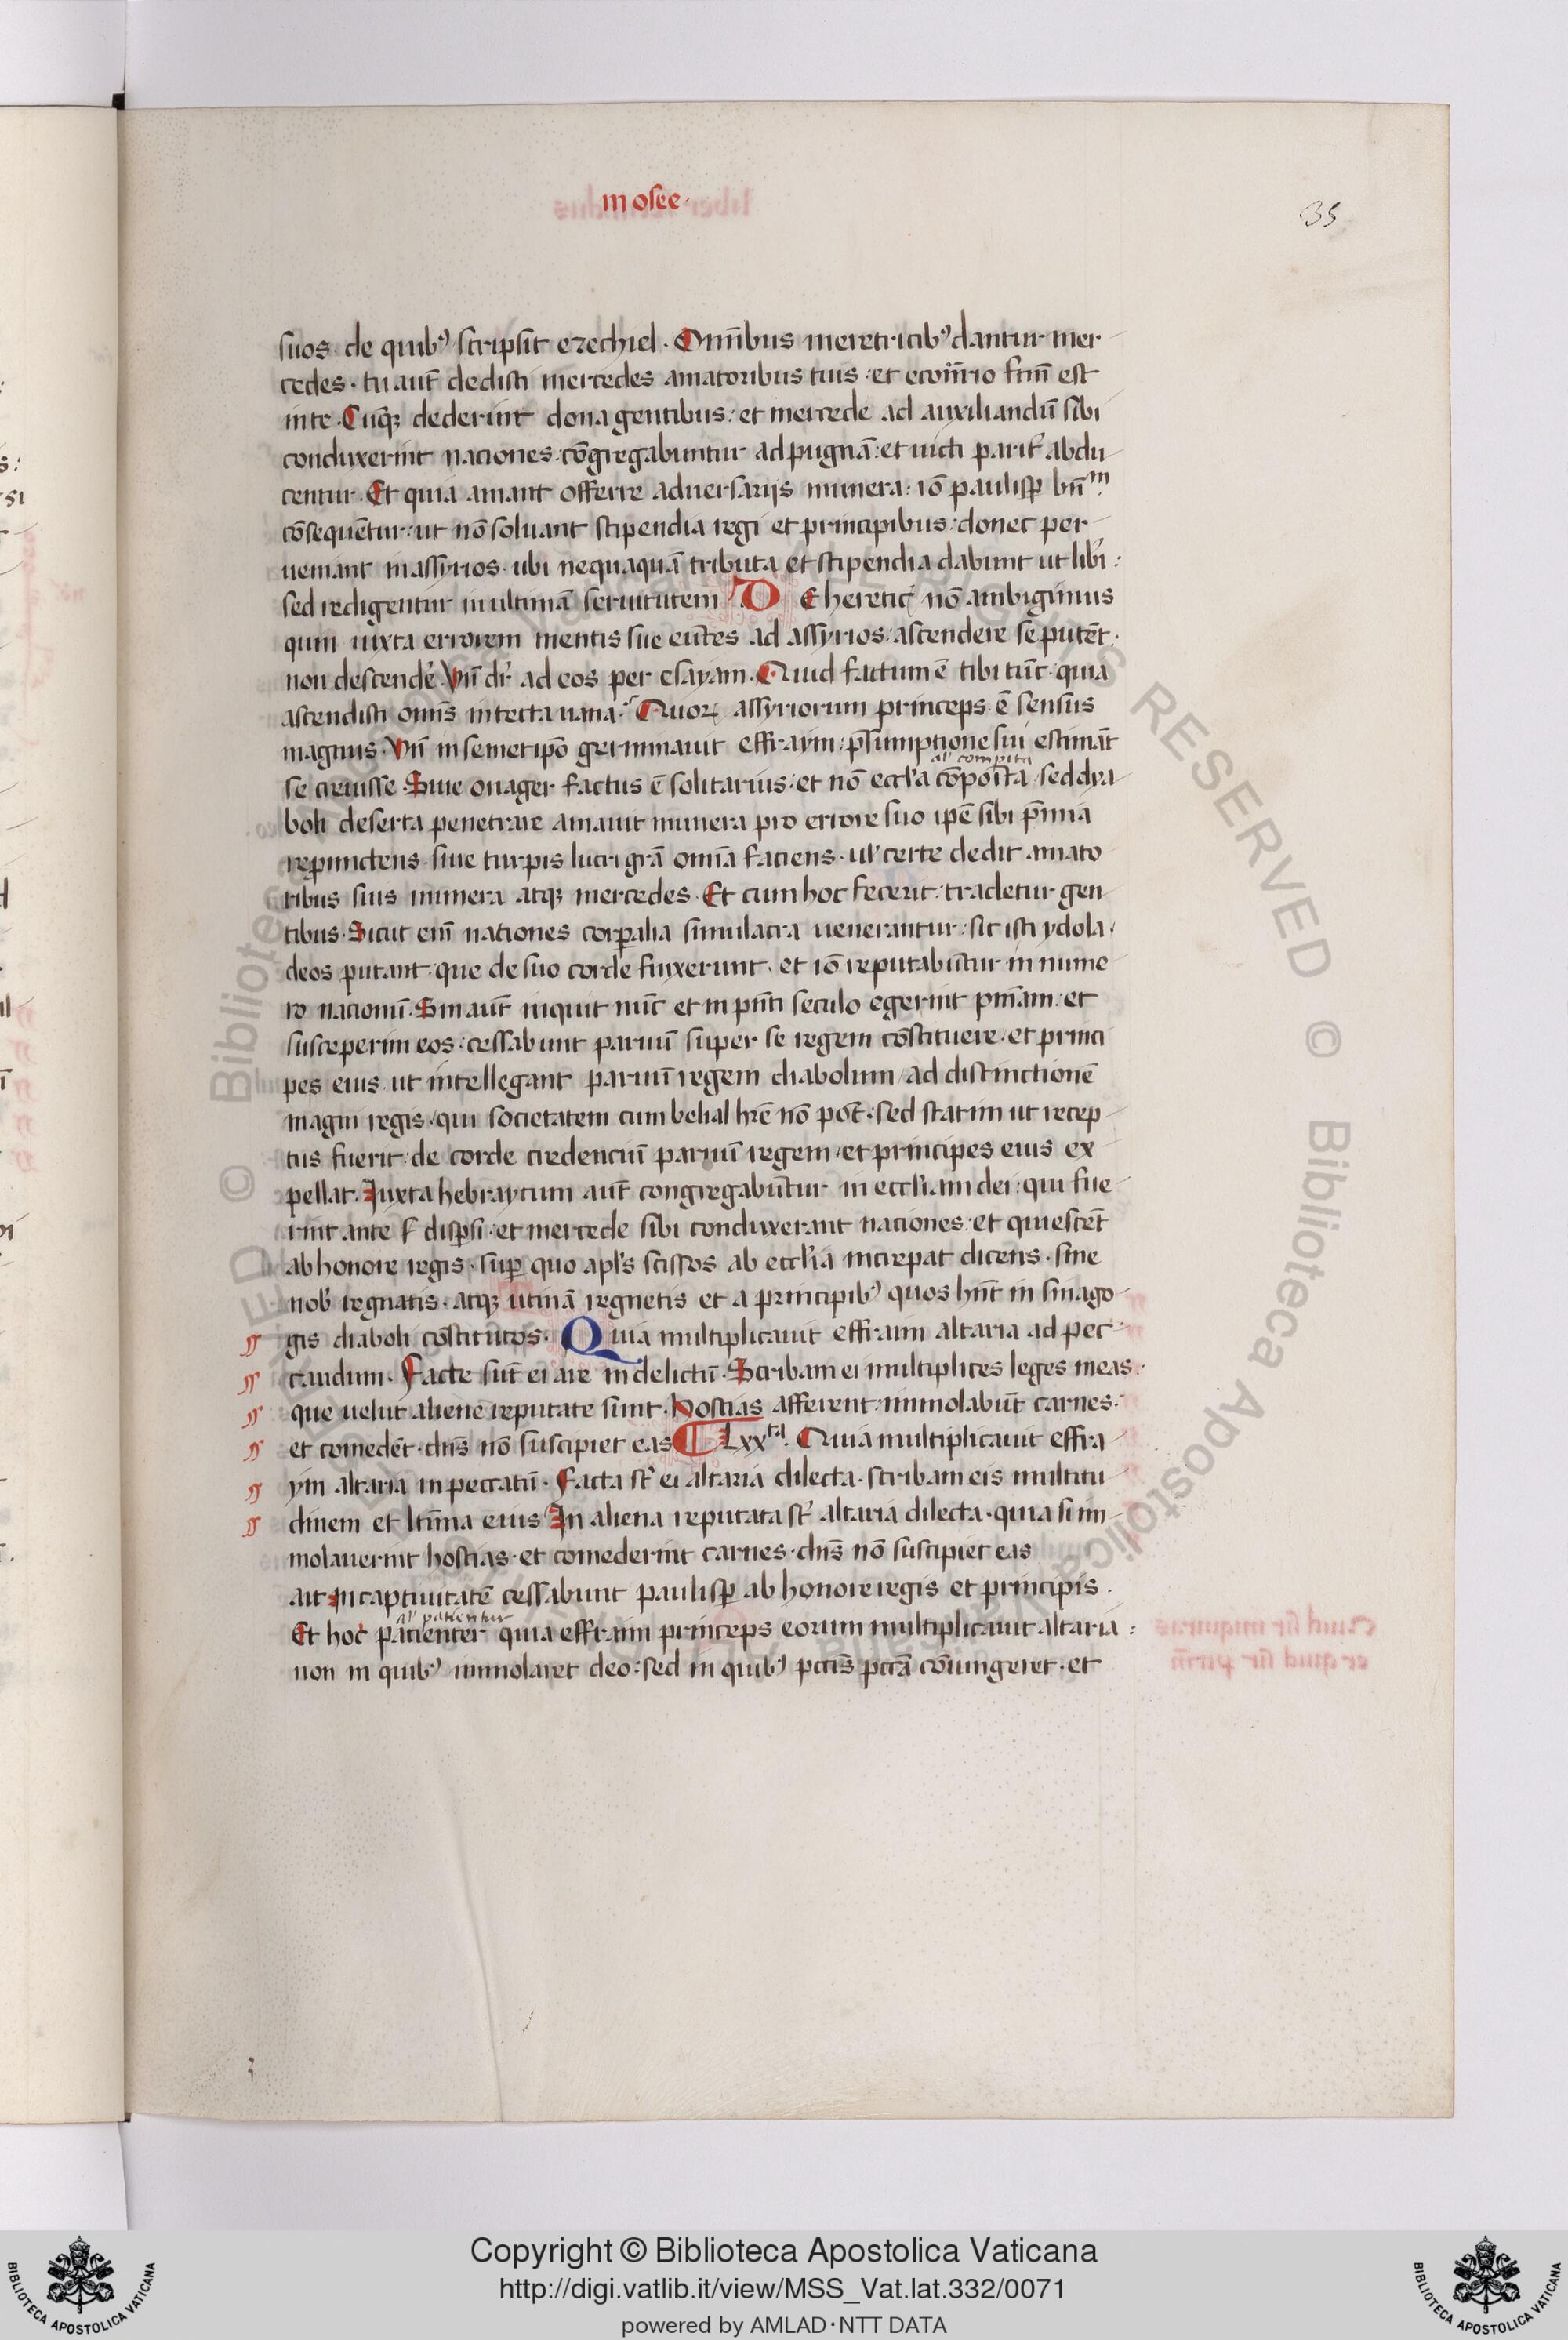 in osee
35
suos. de quib⁹ scripsit ezechiel. Om̄ibus meretricib⁹ dantur mer-
cedes. tu aut̄ dedisti mercedes amatoribus tuis: et econt̄rio f̄cm̄ est
in te. Cūq; dederint dona gentibus: et mercede ad auxiliandū sibi
conduxerint naciones. cōgregabuntur ad pugnā: et uicti parit̄ abdu-
centur. Et quia amant offerre aduersarijs munera: iō paulisp̱
cōsequētur: ut nō soluant stipendia regi et principibus: donec per-
ueniant in assyrios. ubi nequaquā tributa et stipendia dabunt ut lib̄i:
sed redigentur in ultimā seruitutem De hereticꝭ nō ambigimus
qum iuxta errorem mentis sue eūtes ad assyrios: ascendere se putēt.
non descend̄e. Vn̄ dr̄ ad eos per esayam. Quid factum ē tibi nūc. quia
ascendisti om̄s in tecta uana. Quoꝝ assyriorum princeps ē sensus
magnus. Vn̄ in semetip̄o germinauit effraym: p̄sumptione sui estimāt
al' compita
se creuisse. Siue onager factus ē solitarius: et nō eccl'ia cōpo'ita sed dya-
boli deserta penetrare amauit munera pro errore suo ip̄e sibi p̄mia
rep̱mictens. siue turpis lucri grā om̄ia faciens. ul' certe dedit amato
ribus suis munera atq; mercedes. Et cum hoc fecerit: tradetur gen
tibus. Sicut em̄ nationes corp̱alia simulacra uenerantur: sic isti ydola.
deos putant. que de suo corde finxerunt. et iō reputabūtur in nume
ro nacionū. Sin aut̄ inquit nūc et in pn̄ti seculo egerint pn̄iam: et
susceperim eos: cessabunt paruū super se regem cōstituere. et princi
pes eius. ut intellegant paruū regem diabolum ad distinctionē
magni regis. qui societatem cum belial hr̄e nō pot̄. sed statim ut recep-
tus fuerit: de corde credenciū paruū regem. et principes eius ex
pellat. Iuxta hebraycum aut̄ congregabūtur in eccl'iam dei: qui fue-
rint ante disp̱si. et mercede sibi conduxerant naciones: et quiescēt
ab honore regis. sup̱ quo apl's scissos ab eccl'ia increpat dicens. sine
nob' regnatis. atq; utinā regnetis et a principib⁹ quos hn̄t in sinago-
gis diaboli cōstitutos. Quia multiplicauit effraim altaria ad pec-
candum. Facte sūt ei are in delictū. Scribam ei multiplices leges meas.
que uelut aliene reputate sunt. hostias afferent: immolabūt carnes.
et comedēt. dn̄s nō suscipiet eas Lxxᵗᵃ. Quia multiplicauit effra-
ym altaria in peccatū. Facta st̄ ei altaria dilecta. scribam eis multitu-
dinem et l̄tima eius In aliena reputata st̄ altaria dilecta. quia si im-
molauerint hostias. et comederint carnes. dn̄s nō suscipiet eas
ait In captiuitatē cessabunt paulisp̱ ab honore regis et principis.
al' patientur
Et hoc patienter quia effraim princeps eorum multiplicauit altaria:
non in quib⁹ immolaret deo: sed in quib⁹ pctīs pctā cōiungeret. et
Copyright © Biblioteca Apostolica Vaticana
http://digi.vatlib.it/view/MSS_Vat.lat.332/0071
powered by AMLAD·NTT DATA